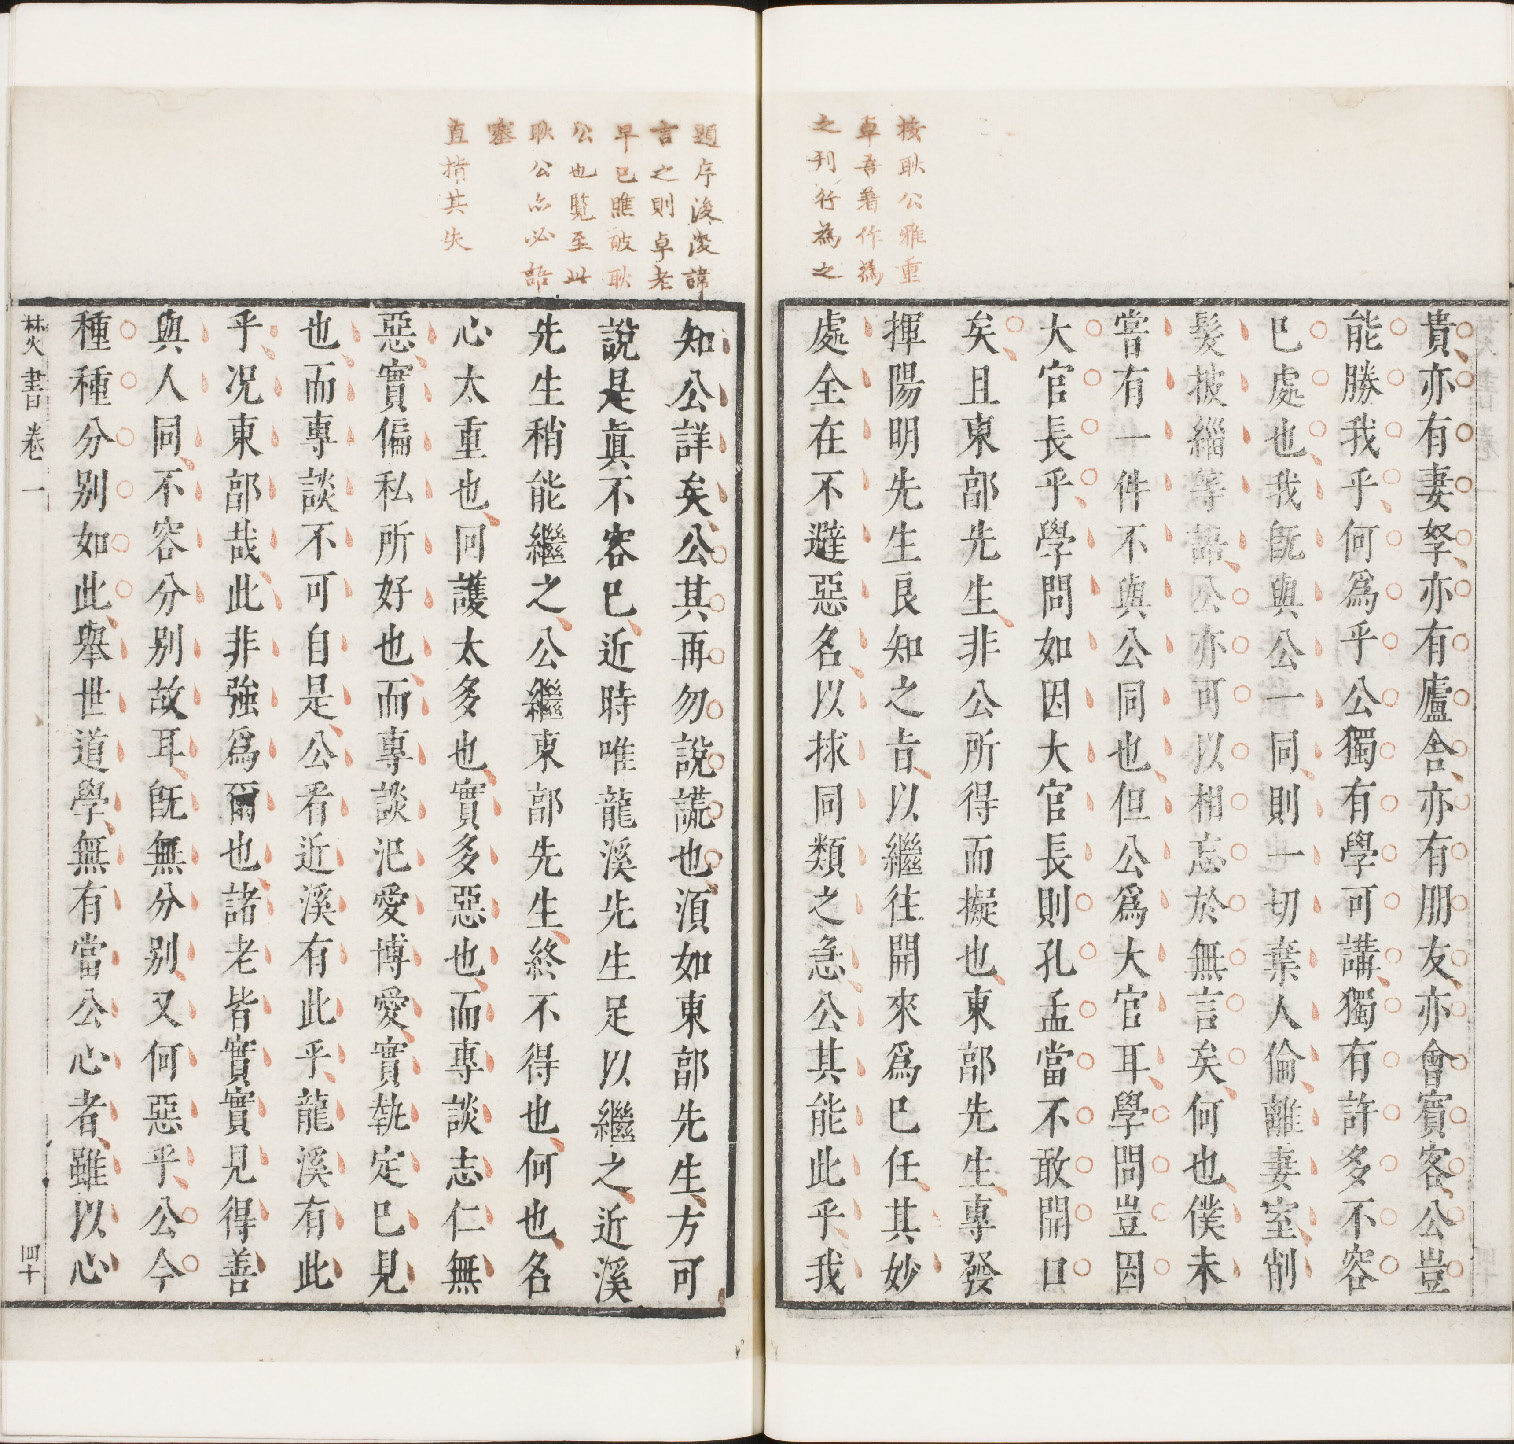 按耿公雅重
卓吾著作爲
之刊行爲之
貴亦有妻孥亦有廬舍亦有朋友亦會賓客公豈
能勝我乎何爲乎公獨有學可講獨有許多不容
已處也我旣與公一同則一切棄人倫離妻室削
髮披緇等語公亦可以相忘於無言矣何也僕未
嘗有一件不與公同也但公爲大官耳學問豈因
大官長乎學問如因大官長則孔孟當不敢開口
矣且東郭先生非公所得而擬也東郭先生專發
揮陽明先生良知之旨以繼往開來爲已任其妙
處全在不避惡名以救同類之急公其能此乎我
題序浚浚諱
言之則卓老
早已瞧破耿
公也覽至此
耿公亦必語
塞
直揹其失
知公詳矣公其再勿說謊也須如東郭先生方可
說是眞不容已近時唯龍溪先生足以繼之近溪
先生稍能繼之公繼東郭先生終不得也何也名
心太重也回護太多也實多惡也而專談志仁無
惡實偏私所好也而專談汜愛博愛實執定已見
也而專談不可自是公看近溪有此乎龍溪有此
乎况東郭哉此非強爲爾也諸老皆實實見得善
與人同不容分别故耳旣無分别又何惡乎公今
種種分别如此舉世道學無有當公心者雖以心
焚書卷一
四十